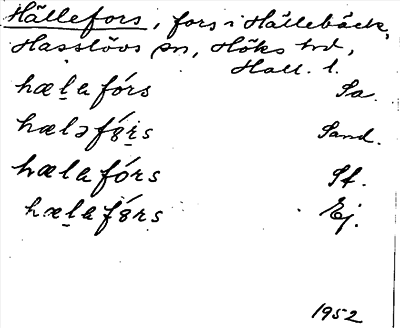 Hällefors, fors i Hällebäck,
Hasslövs sn, Höks hd,
Hall. l.
hæla fórs Sa.
hæləfȣ́rs Sand.
hæla fórs Sf.
hæla fȣ́rs Ej.
1952